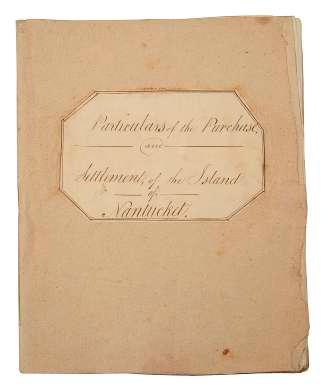 Particulars of the Purchase,
and
Settlement, of the Island
of
Nantucket.